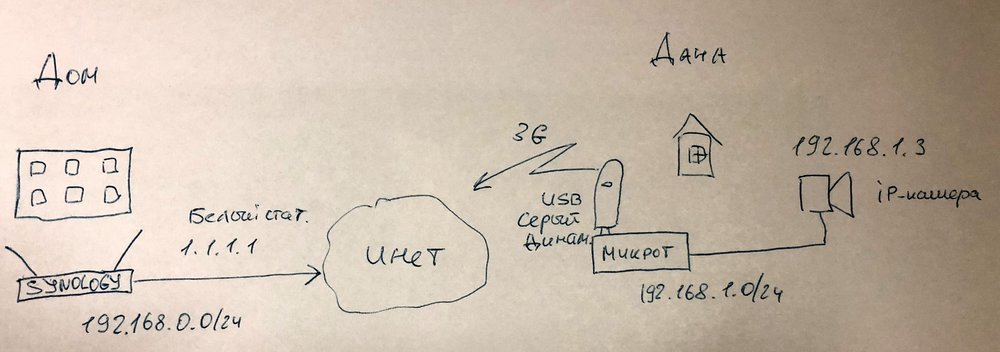 Дом
Дача
3G
192.168.1.3
ip-камера
USB
Серый
Динам.
Белый стат.
1.1.1.1
Инет
Микрот
SYNOLOGY
192.168.1.0/24
192.168.0.0/24